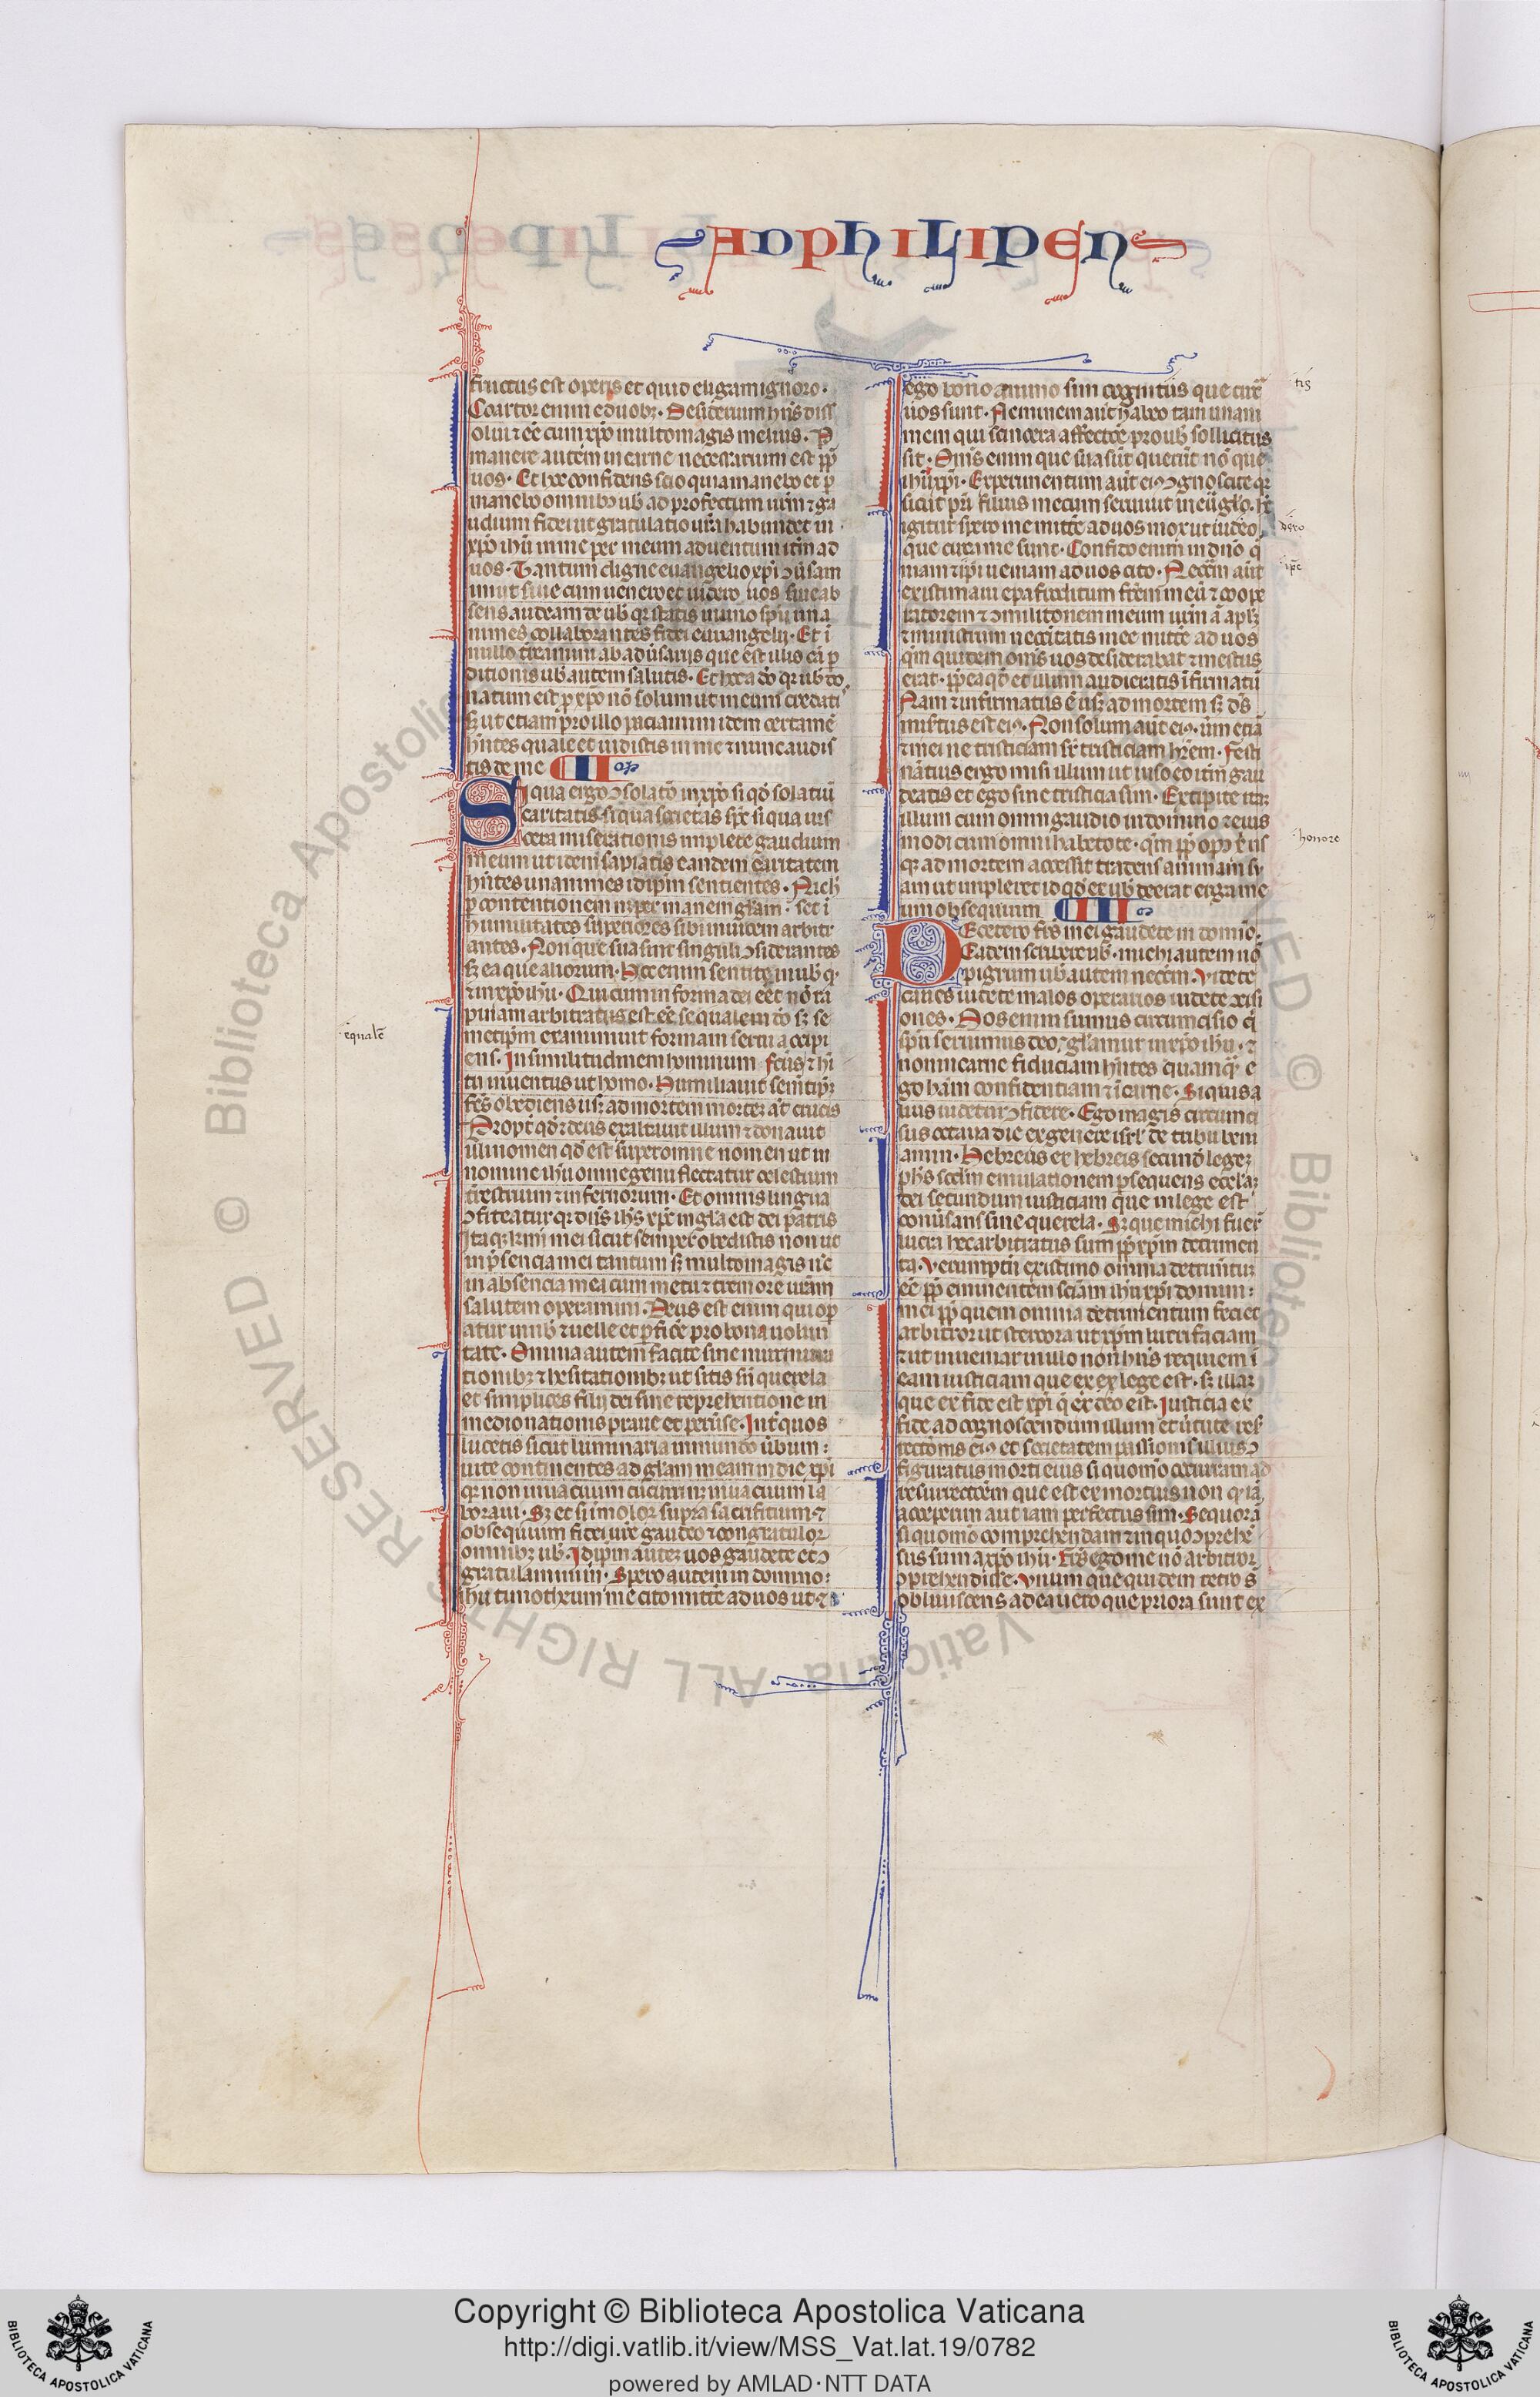 AD PHILIPEN
fructus est operis et quid eligam ignoro.
Coartor enim e duobꝫ. Desiderium hn̄s diss
olui ⁊ eē cum xp̄o multo magis melius. P̄
manere autem in carne necessarium est ꝓp̄
uos. Et hoc confidens scio quia manebo et ꝑ
manebo omnibꝫ uob̄ ad profectum urm̄ ⁊ ga
udium fidei ut gratulatio ur̄a habundet in
xp̄o ih̄u in me per meum aduentum itm̄ ad
uos. Tantum digne euuangelio xp̄i ꝯuersam
mini ut siue cum uenero et uidero uos siue ab
sens audiam de uob̄ qꝛ statis in uno spū una
nimes collaborantes fidei euuangelij. Et ī
nullo tereamini ab aduersarijs que est illis cā ꝑ
ditionis uob̄ autem salutis. Et hoc a dō qꝛ uob̄ do
natum est ꝓ xp̄o nō solum ut in eum credatis
sꝫ ut etiam pro illo paciamini idem certamē
hn̄tes quale et uidistis in me ⁊ nunc audis
tis de me II
Si qua ergo ꝯsolatō in xp̄o si qd̄ solatiū
caritatis si qua societas spc̄ si qua uis
cera miserationis implete gaudium
meum ut idem sapiatis eandem caritatem
hn̄tes unanimes idip̄m sentientes. Nichil
ꝑ contentionem neqꝫ per inanem glām. set ī
humilitates superiores sibi inuicem arbitr
antes. Non que sua sunt singuli ꝯsiderantes
sꝫ ea que aliorum. Hoc enim sentite in uob̄ qd̄
⁊ in xp̄o ih̄u. Qui cum in forma dei eēt nō ra
pinam arbitratus est eē se qualem dō sꝫ se
metip̄m exinaniuit formam serui accipi
ens. In similitudinem hominum fc̄us ⁊ hi
tu inuentus ut homo. Humiliauit semetip̄m
fc̄s obediens usqꝫ ad mortem mortem aūt crucis
Propt̄ qd̄ ⁊ deus exaltauit illum ⁊ donauit
illi nomen qd̄ est super omne nomen ut in
nomine ih̄u omne genu flectatur celestium
trestrium ⁊ infernorum. Et omnis lingua
ꝯfiteatur qꝛ dn̄s ih̄s xp̄c in glā est dei patris
Itaqꝫ krm̄i mei sicut semper obedistis non ut
in p̄sencia mei tantum sꝫ multo magis nc̄
in absencia mea cum metu ⁊ tremore uram̄
salutem operamini. Deus est enim qui oꝑ
atur in uob̄ ⁊ uelle et ꝑficē pro bona uolun
tate. Omnia autem facite sine murmura
tionibꝫ ⁊ hesitationibꝫ ut sitis sn̄ querela
et simplices filij dei sine reprehentione in
medio nationis praue et peruerse. Int̄ quos
lucetis sicut luminaria in mundo uerbum
uite continentes ad glām meam in die xp̄i
qꝛ non in uacuum cucurri neqꝫ in uacuum la
boraui. Sꝫ et si imolor supra sacrificium ⁊
obsequium fidei ur̄e gaudeo ⁊ congratulor
omnibꝫ uob̄. Idip̄m autem uos gaudete et ꝯ
gratulamini m̄. Spero autem in domino
ih̄u timotheum me cito mittere ad uos ut ⁊
equalē
ego bono animo sim cognitis que circa
uos sunt. Neminem aūt habeo tam unani
mem qui sincera affectōe pro uob̄ sollicitus
sit. Om̄s enim que sua sūt querūt nō que
ih̄u xp̄i. Experimentum aūt eiꝰ ꝯgnoscite qꝛ
sicut pr̄i filius mecum seruiuit in euuglō. hc̄
igitur spero me mitte ad uos mox ut uideo
que circa me sunt. Confido enim in dn̄o qm̄
niam ⁊ ip̄i ueniam ad uos cito. Necm̄ aūt
existimaui epafroditum frēm meū ⁊ coope
ratorem ⁊ ꝯmilitonem meum urm̄ aūt apl̄m
⁊ ministrum necc̄itatis mee mittē ad uos
qm̄ quidem om̄s uos desiderabat ⁊ mestus
erat. ꝓp̄ea qd̄ et illum audieratis īfirmatū
Nam ⁊ infirmatus ē usqꝫ ad mortem sꝫ dс̄
mis̄tus est eiꝰ. Non solum aūt eiꝰ uerum etiā
⁊ mei ne tristiciam sr̄ tristiciam hr̄em. Festi
nātius ergo misi illum ut uiso eo itm̄ gau
deatis et ego sine tristicia sim. Excipite itaqꝫ
illum cum omni gaudio in domino ⁊ eius
modi cum omni habetote. qm̄ ꝓp̄ opꝰ xp̄i us
qꝫ ad mortem accessit tradens animam su
am ut impleret id qd̄ ex uob̄ deerat erga me
um obsequium III
De cetero frēs mei gaudete in domīo.
Eadem scribere uob̄. michi autem nō
pigrum uob̄ autem necc̄m. Videte
canes uidete malos operarios uidete ꝯcisi
ones. Nos enim sumus circumcisio qui
spū seruimus deo. ⁊ glamur in xp̄o ih̄u. ⁊
non in carne fiduciam hn̄tes quamqꝫ e
go ham̄ confidentiam ⁊ ī carne. Si quis a
lius uidetur ꝯfidere. Ego magis circumci
sus octaua die ex genere isrl̄ de tribu beni
amin. Hebreus ex hebreis secundū legem
phs̄ scdm̄ emulationem ꝑsequens eccl̄am
dei secundum iusticiam que in lege est
conuersans sine querela. Sꝫ que michi fuer̄
lucra hec arbitratus sum ꝓp̄ xp̄m detrimen
ta. Verumptn̄ existimo omnia detrimtum
eē ꝓp̄ eminentem scīam ih̄u xp̄i domini
mei ꝓp̄ quem omnia detrimentum feci et
arbitror ut stercora ut xp̄m lucri faciam
⁊ ut inueniar in illo non hn̄s requiem ī
eam iusticiam que ex ex lege est. sꝫ illam
que ex fide est xp̄i q̄ ex deo est. Iusticia ex
fide ad cognoscendum illum et uirtute resur
rectōnis eiꝰ et societatem passionis illius ꝯ
figuratus morti eius si quomō occurram ad
resurrectōem que est ex mortuis non qd̄ iā
acceperim aut iam perfectus sim. Sequor aūt
si quomō comprehendam ⁊ in quo ꝯprehē
sus sum a xp̄o ih̄u. frēs ego me nō arbitror
ꝯprehendisse. Vnum que quidem retro st̄
obliuiscens ad ea uero que priora sunt ex
tis
dero
ip̄e
honore
Copyright © Biblioteca Apostolica Vaticana
http://digi.vatlib.it/view/MSS_Vat.lat.19/0782
powered by AMLAD·NTT DATA
BIBLIOTECA APOSTOLICA VATICANA
BIBLIOTECA APOSTOLICA VATICANA
Biblioteca Apostolica Vaticana ALL RIGHTS RESERVED ©